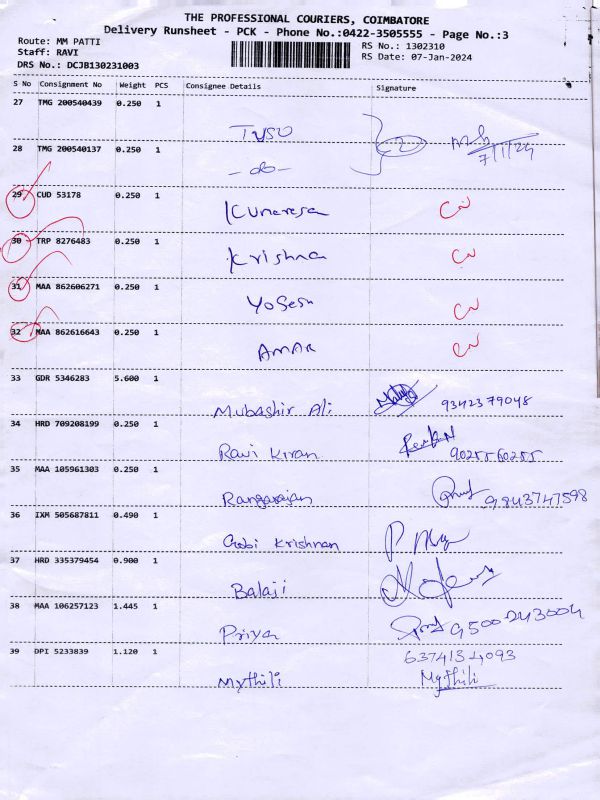 THE PROFESSIONAL COURIERS, COIMBATORE
Delivery Runsheet - PCK - Phone No.:0422-3505555 - Page No.:3
Route: MM PATTI
Staff: RAVI
DRS No.: DCJB130231003
RS No.: 1302310
RS Date: 07-Jan-2024
S No Consignment No Weight PCS Consignee Details Signature
27 TMG 200540439 0.250 1
28 TMG 200540137 0.250 1 -do- 7/1/24
29 CUD 53178 0.250 1
30 TRP 8276483 0.250 1 Krishna
31 MAA 862606271 0.250 1 Yogesh
32 MAA 862616643 0.250 1 AMAR
33 GDR 5346283 5.600 1 Mubashir Ali 9342379048
34 HRD 709208199 0.250 1 Ravi Kiran 9025560255
35 MAA 105961303 0.250 1 Rangarajan 9843747598
36 IXM 505687811 0.490 1 Gobi Krishnan
37 HRD 335379454 0.900 1 Balaji
38 MAA 106257123 1.445 1 Priya 9500243004
39 DPI 5233839 1.120 1 Mythili 6374134093
Mythili